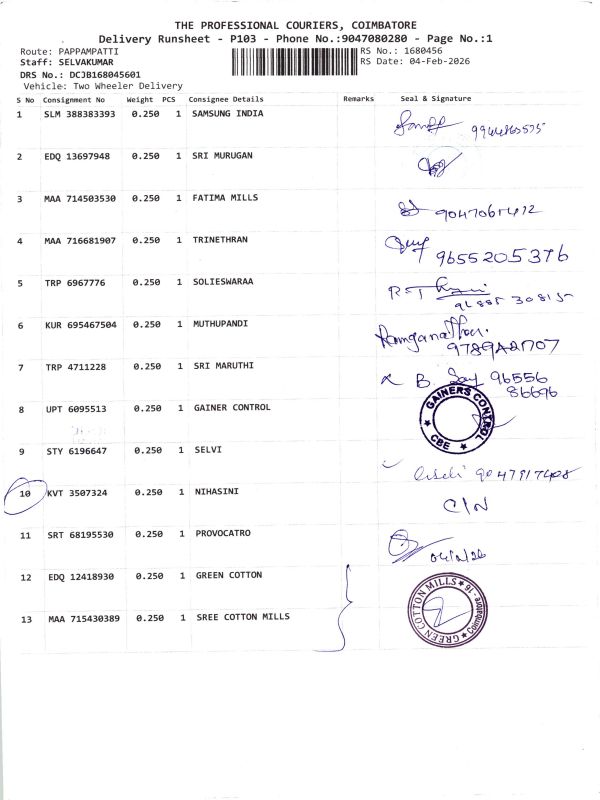 THE PROFESSIONAL COURIERS, COIMBATORE
Delivery Runsheet - P103 - Phone No.:9047080280 - Page No.:1
Route: PAPPAMPATTI RS No.: 1680456
Staff: SELVAKUMAR RS Date: 04-Feb-2026
DRS No.: DCJB168045601
Vehicle: Two Wheeler Delivery
S No Consignment No Weight PCS Consignee Details Remarks Seal & Signature
1 SLM 388383393 0.250 1 SAMSUNG INDIA
2 EDQ 13697948 0.250 1 SRI MURUGAN
3 MAA 714503530 0.250 1 FATIMA MILLS
4 MAA 716681907 0.250 1 TRINETHRAN
9655205376
5 TRP 6967776 0.250 1 SOLIESWARAA
6 KUR 695467504 0.250 1 MUTHUPANDI
7 TRP 4711228 0.250 1 SRI MARUTHI
B. 96556
86696
8 UPT 6095513 0.250 1 GAINER CONTROL
GAINERS CONTROL
CBE
9 STY 6196647 0.250 1 SELVI
10 KVT 3507324 0.250 1 NIHASINI
C/N
11 SRT 68195530 0.250 1 PROVOCATRO
04/2/26
12 EDQ 12418930 0.250 1 GREEN COTTON
GREEN COTTON MILLS
Coimbatore - 16
13 MAA 715430389 0.250 1 SREE COTTON MILLS